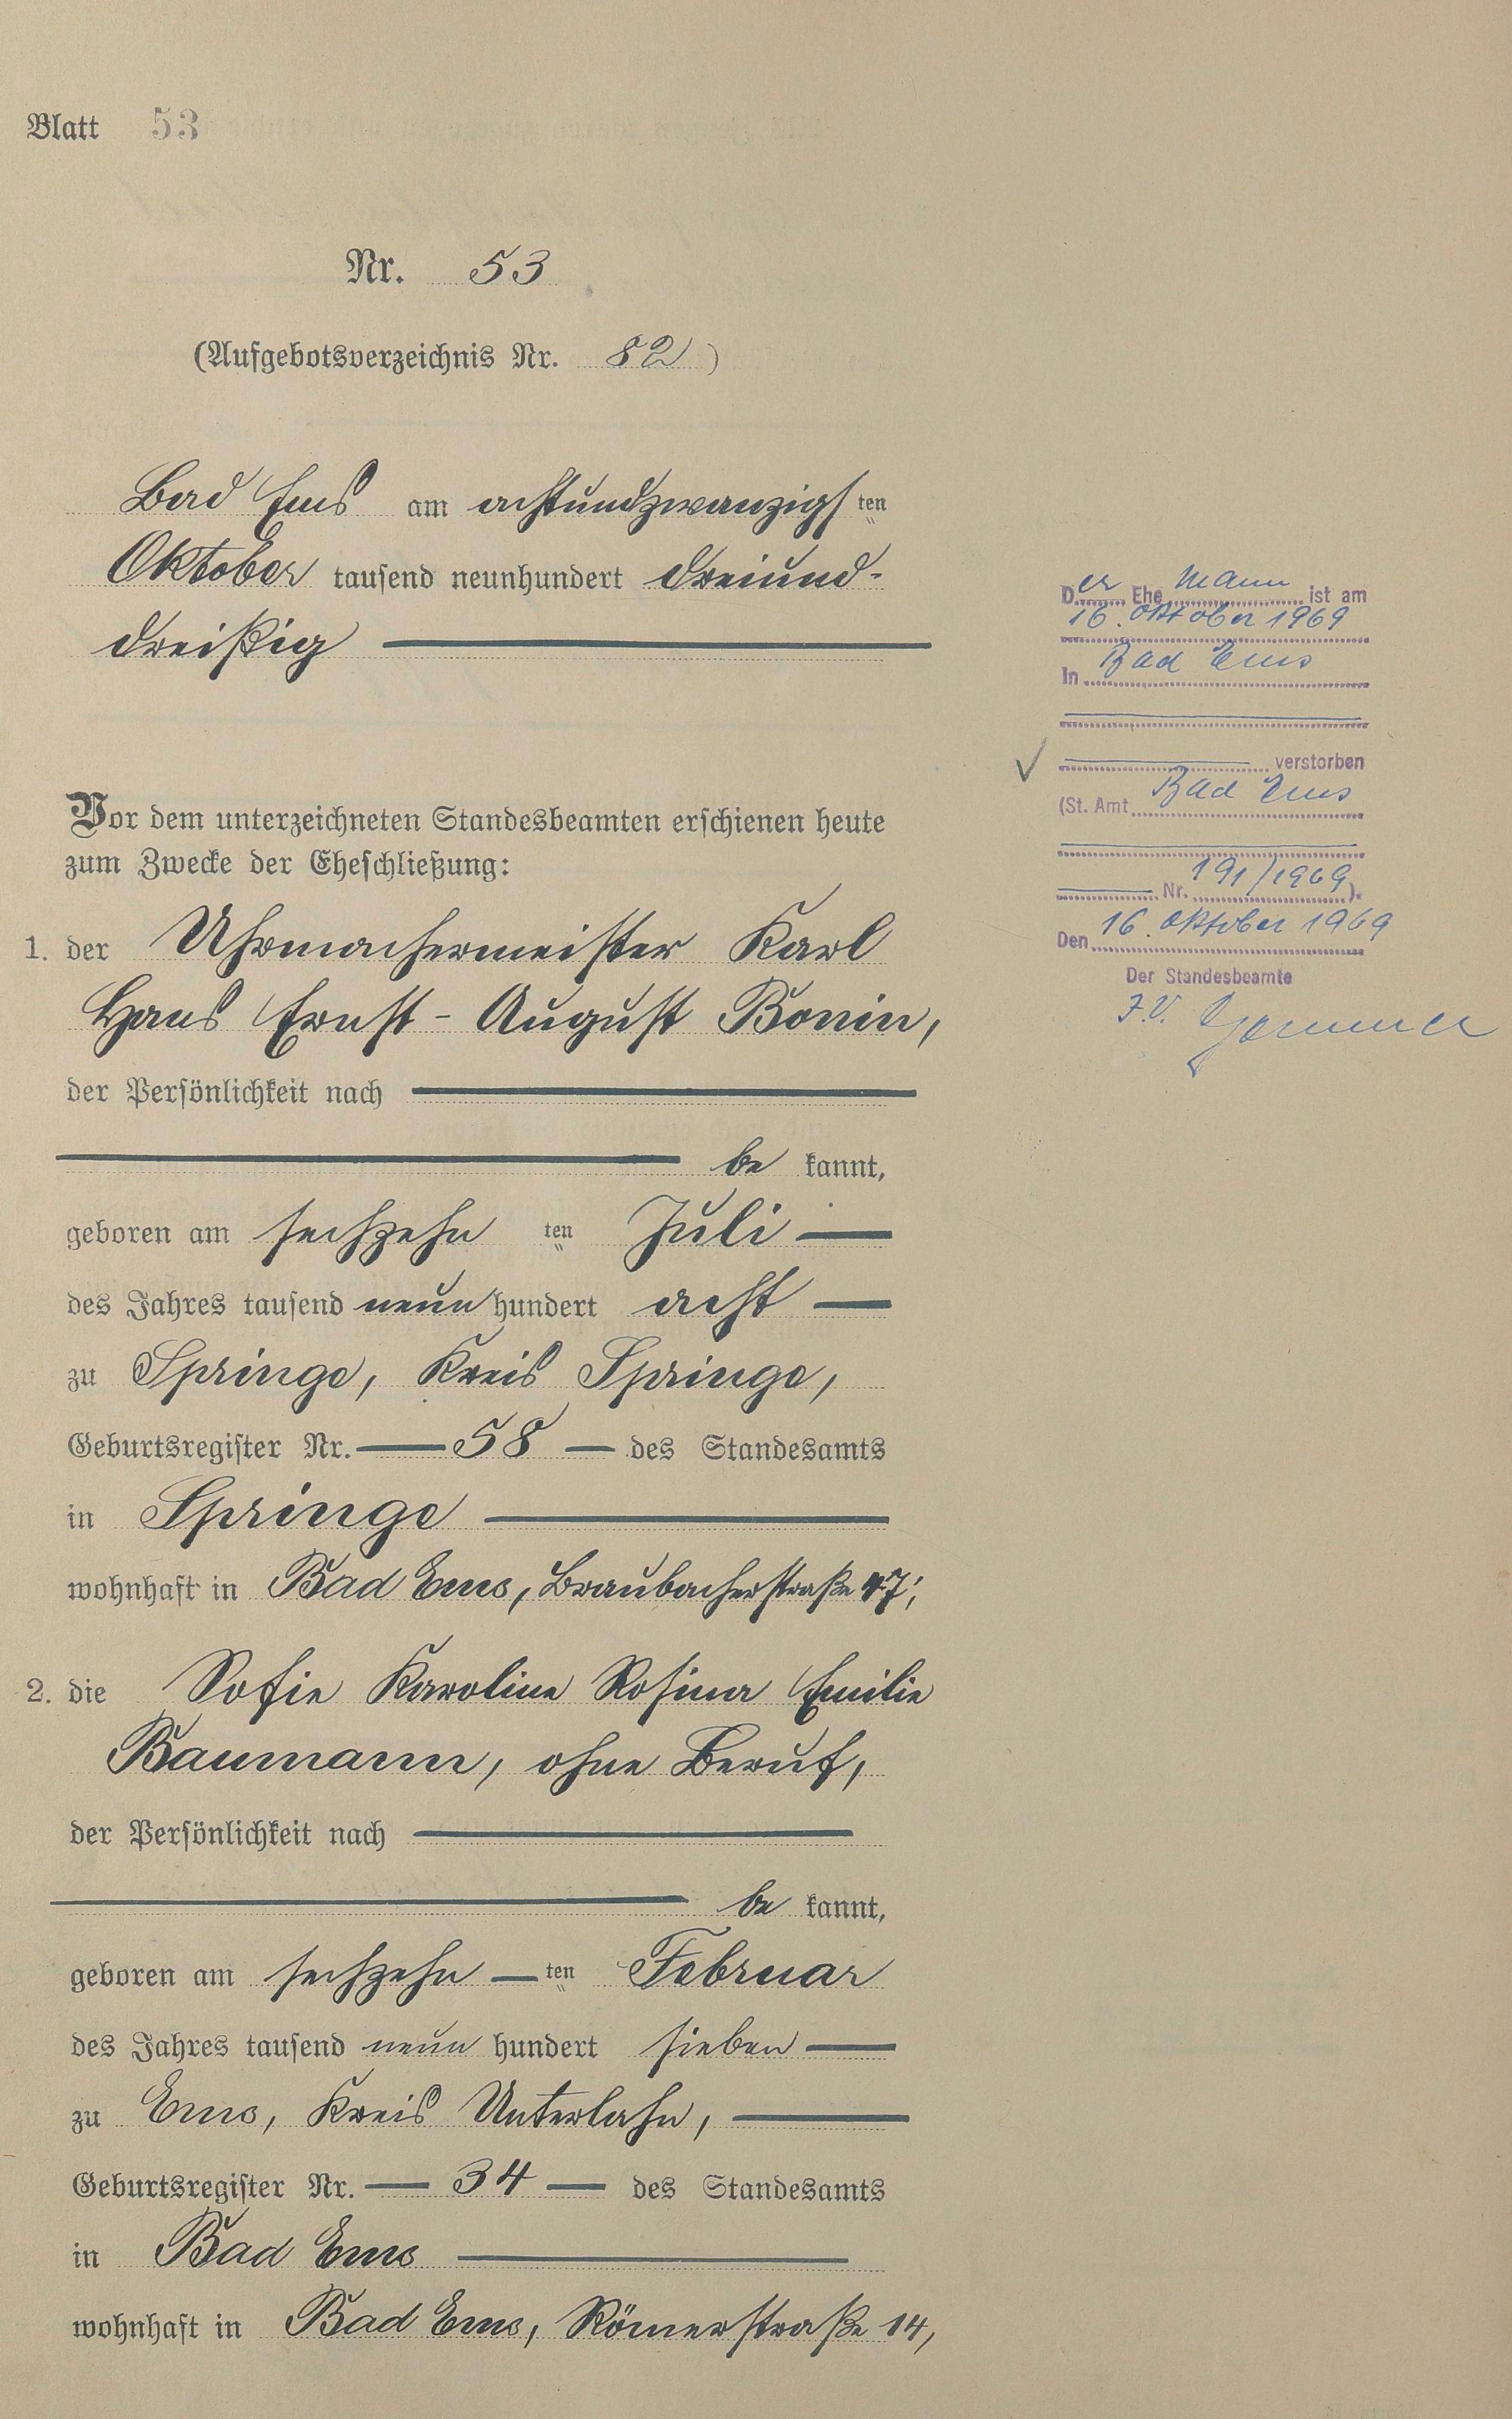 Blatt 53
Nr. 53
(Aufgebotsverzeichnis Nr. 82)
Bad Ems am achtundzwanzigsten
Oktober tausend neunhundert dreiund-
dreißig
Vor dem unterzeichneten Standesbeamten erschienen heute
zum Zwecke der Eheschließung:
1. der Uhrmachermeister Karl
Hans Ernst-August Bonin,
der Persönlichkeit nach
be kannt,
geboren am sechzehn ten Juli
des Jahres tausend neun hundert acht
zu Springe, Kreis Springe,
Geburtsregister Nr. 58 des Standesamts
in Springe
wohnhaft in Bad Ems, Braubacherstraße 47;
2. die Sofie Karoline Rosina Emilie
Baumann, ohne Beruf,
der Persönlichkeit nach
be kannt,
geboren am sechzehn ten Februar
des Jahres tausend neun hundert sieben
zu Ems, Kreis Unterlahn,
Geburtsregister Nr. 34 des Standesamts
in Bad Ems
wohnhaft in Bad Ems, Römerstraße 14,
Der Ehe mann ist am
16. Oktober 1969
In Bad Ems
verstorben
(St. Amt Bad Ems
Nr. 191/1969).
Den 16. Oktober 1969
Der Standesbeamte
I.V.